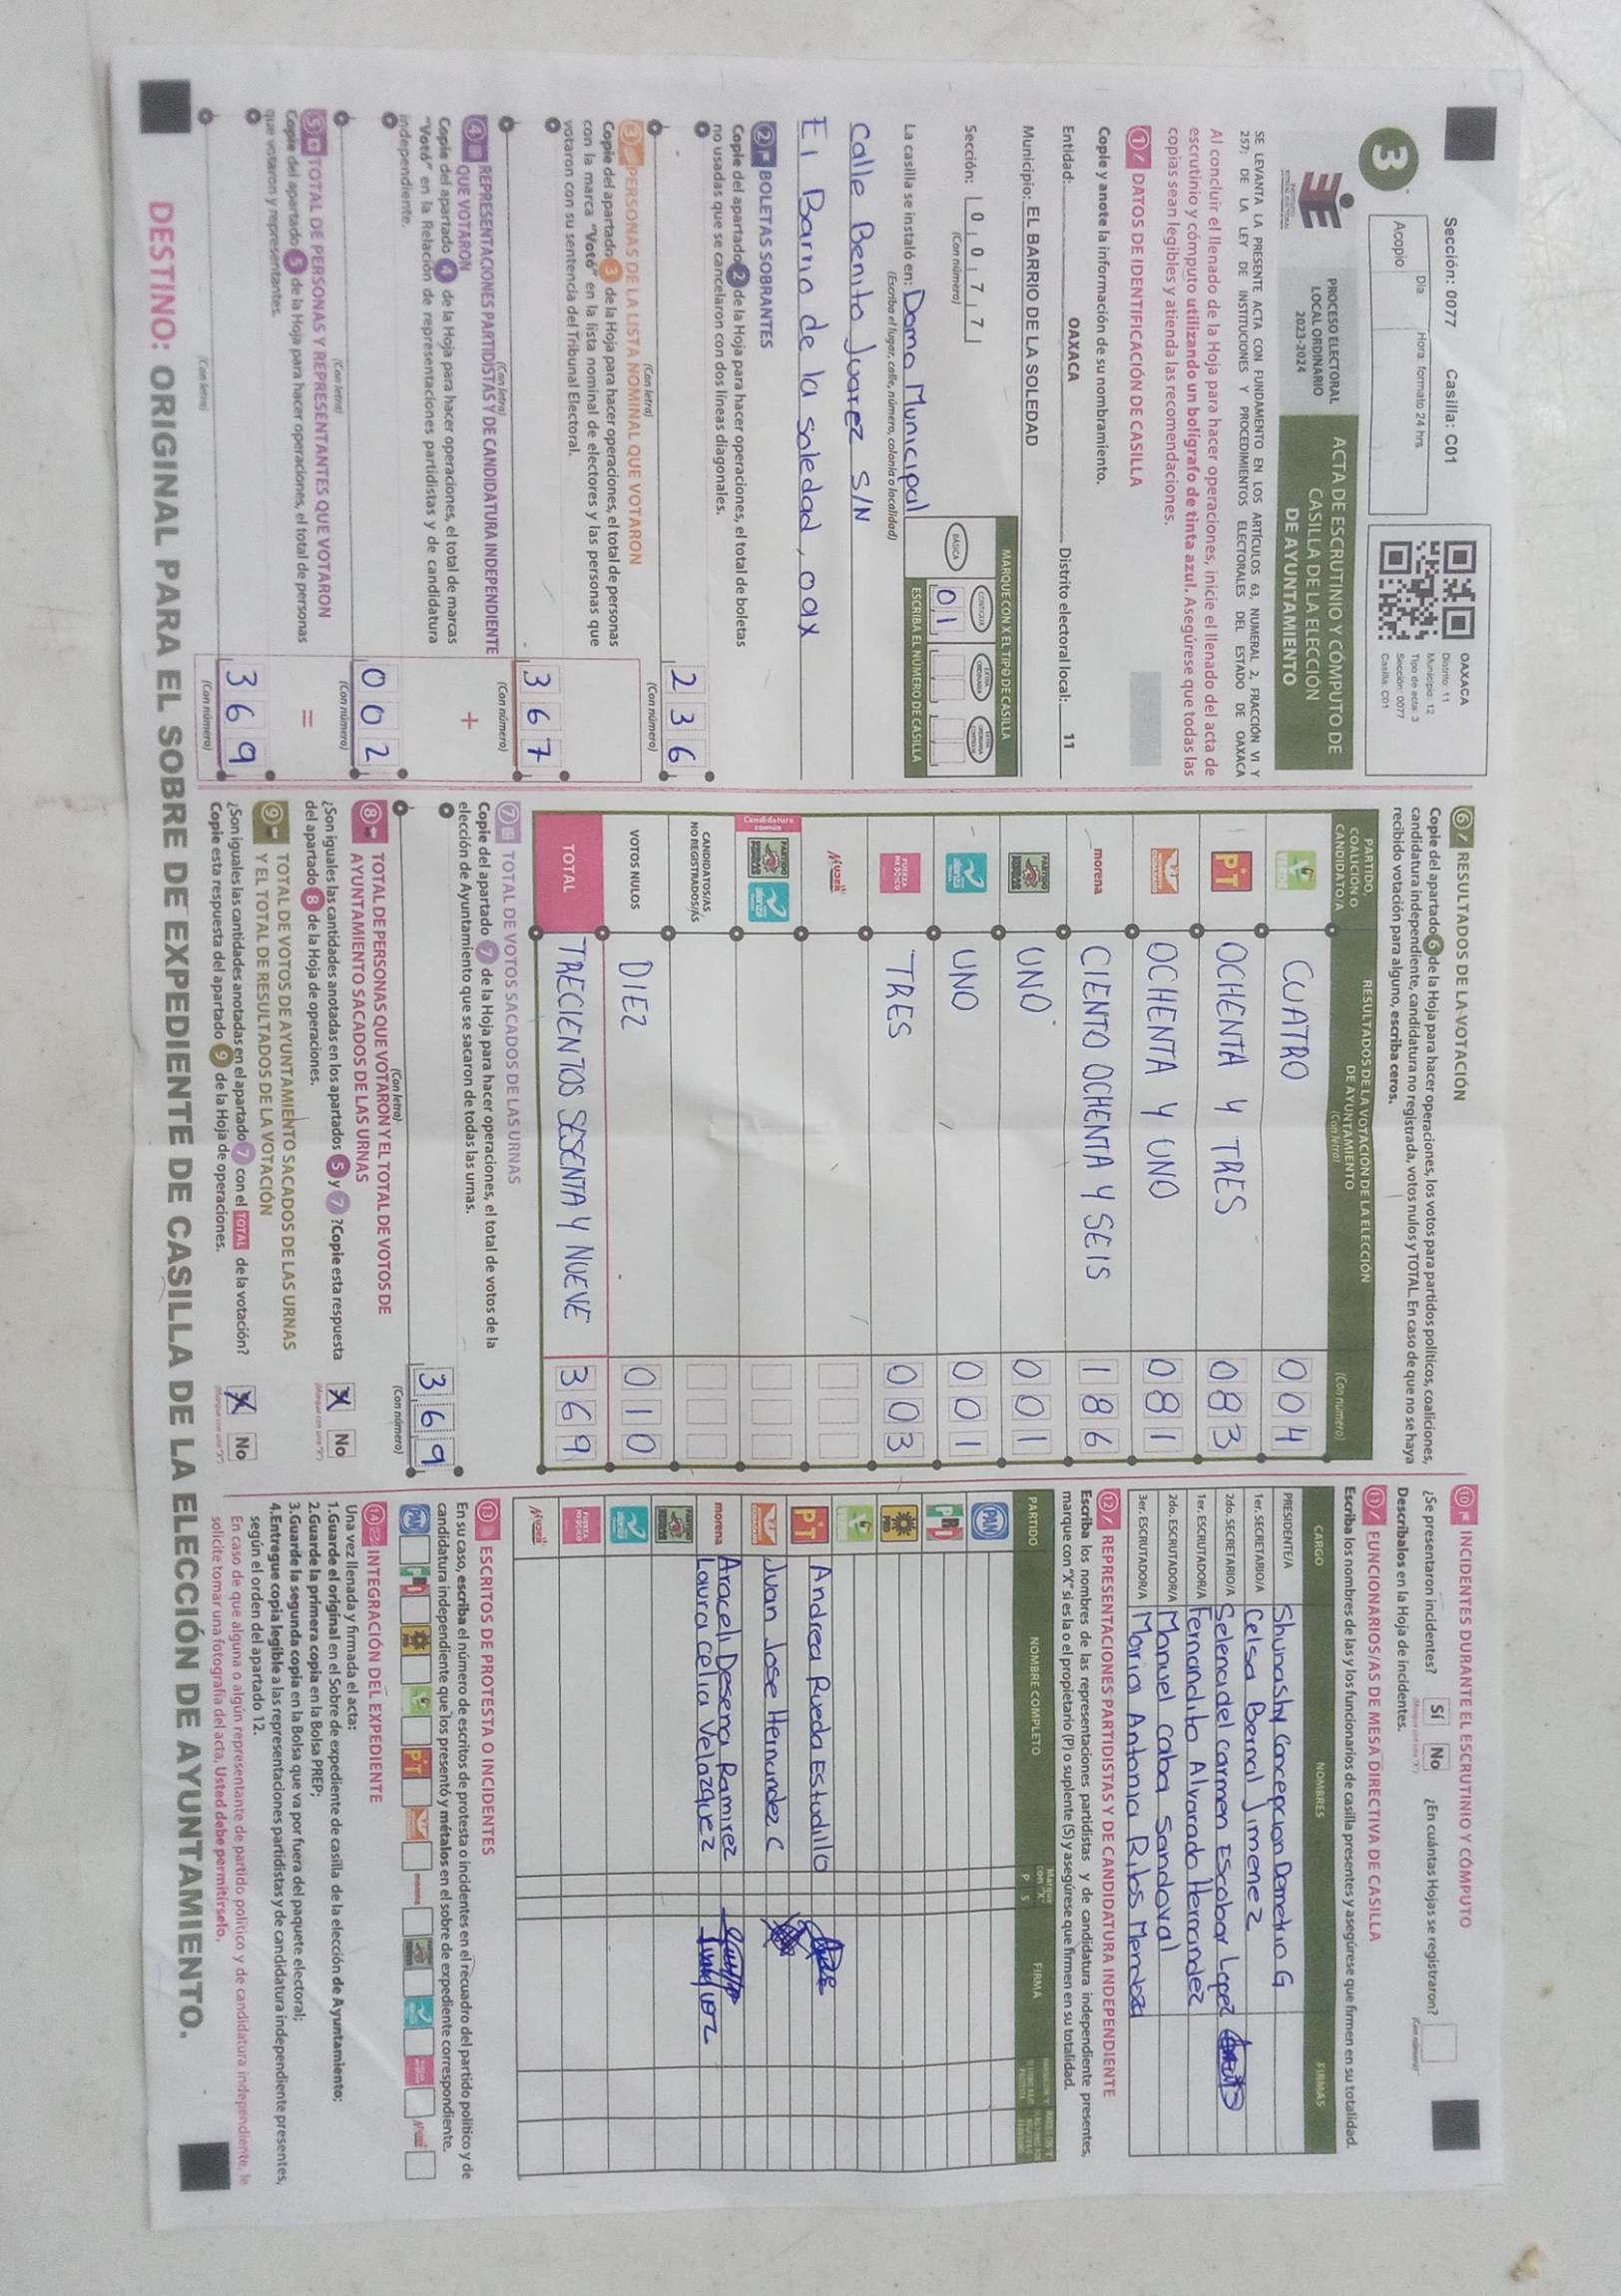 Sección: 0077 Casilla: C01
3
Día
Hora formato 24 hrs.
Acopio
OAXACA
Distrito: 11
Municipio: 12
Tipo de acta: 3
Sección: 0077
Casilla: C01
PROCESO ELECTORAL
LOCAL ORDINARIO
2023-2024
ACTA DE ESCRUTINIO Y CÓMPUTO DE
CASILLA DE LA ELECCIÓN
DE AYUNTAMIENTO
SE LEVANTA LA PRESENTE ACTA CON FUNDAMENTO EN LOS ARTÍCULOS 63, NUMERAL 2, FRACCIÓN VI Y
257; DE LA LEY DE INSTITUCIONES Y PROCEDIMIENTOS ELECTORALES DEL ESTADO DE OAXACA
Al concluir el llenado de la Hoja para hacer operaciones, inicie el llenado del acta de
escrutinio y cómputo utilizando un bolígrafo de tinta azul. Asegúrese que todas las
copias sean legibles y atienda las recomendaciones.
1 DATOS DE IDENTIFICACIÓN DE CASILLA
Copie y anote la información de su nombramiento.
Entidad: OAXACA Distrito electoral local: 11
Municipio: EL BARRIO DE LA SOLEDAD
Sección: 0 0 7 7
(Con número)
MARQUE CON X EL TIPO DE CASILLA
BÁSICA
CONTIGUA
0 1
ESCRIBA EL NÚMERO DE CASILLA
La casilla se instaló en: Domo Municipal
(Escriba el lugar, calle, número, colonia o localidad)
Calle Benito Juarez S/N
El Barrio de la soledad, oax
2 BOLETAS SOBRANTES
Copie del apartado 2 de la Hoja para hacer operaciones, el total de boletas
no usadas que se cancelaron con dos líneas diagonales.
2 3 6
(Con letra) (Con número)
3 PERSONAS DE LA LISTA NOMINAL QUE VOTARON
Copie del apartado 3 de la Hoja para hacer operaciones, el total de personas
con la marca "Votó" en la lista nominal de electores y las personas que
votaron con su sentencia del Tribunal Electoral.
3 6 7
(Con letra) (Con número)
4 REPRESENTACIONES PARTIDISTAS Y DE CANDIDATURA INDEPENDIENTE
QUE VOTARON
+
Copie del apartado 4 de la Hoja para hacer operaciones, el total de marcas
"Votó" en la Relación de representaciones partidistas y de candidatura
independiente.
0 0 2
(Con letra) (Con número)
5 TOTAL DE PERSONAS Y REPRESENTANTES QUE VOTARON
=
Copie del apartado 5 de la Hoja para hacer operaciones, el total de personas
que votaron y representantes.
3 6 9
(Con letra) (Con número)
6 RESULTADOS DE LA VOTACIÓN
Copie del apartado 6 de la Hoja para hacer operaciones, los votos para partidos políticos, coaliciones,
candidatura independiente, candidatura no registrada, votos nulos y TOTAL. En caso de que no se haya
recibido votación para alguno, escriba ceros.
PARTIDO,
COALICIÓN O
CANDIDATO/A
RESULTADOS DE LA VOTACIÓN DE LA ELECCIÓN
DE AYUNTAMIENTO
(Con letra)
(Con número)
VERDE CUATRO 0 0 4
PT OCHENTA Y TRES 0 8 3
OCHENTA Y UNO 0 8 1
morena CIENTO OCHENTA Y SEIS 1 8 6
UNO 0 0 1
UNO 0 0 1
FUERZA MÉXICO TRES 0 0 3
Candidatura común
CANDIDATOS/AS
NO REGISTRADOS/AS
VOTOS NULOS DIEZ 0 1 0
TOTAL TRECIENTOS SESENTA Y NUEVE 3 6 9
7 TOTAL DE VOTOS SACADOS DE LAS URNAS
Copie del apartado 7 de la Hoja para hacer operaciones, el total de votos de la
elección de Ayuntamiento que se sacaron de todas las urnas.
3 6 9
(Con letra) (Con número)
8 TOTAL DE PERSONAS QUE VOTARON Y EL TOTAL DE VOTOS DE
AYUNTAMIENTO SACADOS DE LAS URNAS
¿Son iguales las cantidades anotadas en los apartados 5 y 7 ? Copie esta respuesta
del apartado 8 de la Hoja de operaciones.
X No
9 TOTAL DE VOTOS DE AYUNTAMIENTO SACADOS DE LAS URNAS
Y EL TOTAL DE RESULTADOS DE LA VOTACIÓN
¿Son iguales las cantidades anotadas en el apartado 7 con el TOTAL de la votación?
Copie esta respuesta del apartado 9 de la Hoja de operaciones.
X No
10 INCIDENTES DURANTE EL ESCRUTINIO Y CÓMPUTO
¿Se presentaron incidentes? Sí No ¿En cuántas Hojas se registraron?
Descríbalos en la Hoja de incidentes.
11 FUNCIONARIOS/AS DE MESA DIRECTIVA DE CASILLA
Escriba los nombres de las y los funcionarios de casilla presentes y asegúrese que firmen en su totalidad.
CARGO NOMBRES FIRMAS
PRESIDENTE/A Shunashy Concepcion Demetrio G
1er. SECRETARIO/A Celsa Bernal Jimenez
2do. SECRETARIO/A Selena del carmen Escobar Lopez
1er. ESCRUTADOR/A Fernandito Alvarado Hernandez
2do. ESCRUTADOR/A Manuel Caba Sandoval
3er. ESCRUTADOR/A Maria Antonia Rilos
12 REPRESENTACIONES PARTIDISTAS Y DE CANDIDATURA INDEPENDIENTE
Escriba los nombres de las representaciones partidistas y de candidatura independiente presentes,
marque con "X" si es la o el propietario (P) o suplente (S) y asegúrese que firmen en su totalidad.
PARTIDO NOMBRE COMPLETO Marque con "X" P S FIRMA
PAN
PRI
PRD
VERDE
PT Andrea Rueda Estudillo
Juan Jose Hernandez C
morena Araceli Desena Ramirez
Laura Celia Velazquez
FUERZA MÉXICO
13 ESCRITOS DE PROTESTA O INCIDENTES
En su caso, escriba el número de escritos de protesta o incidentes en el recuadro del partido político y de
candidatura independiente que los presentó y métalos en el sobre de expediente correspondiente.
PAN PRI PRD VERDE PT morena
14 INTEGRACIÓN DEL EXPEDIENTE
Una vez llenada y firmada el acta:
1.Guarde el original en el Sobre de expediente de casilla de la elección de Ayuntamiento;
2.Guarde la primera copia en la Bolsa PREP;
3.Guarde la segunda copia en la Bolsa que va por fuera del paquete electoral;
4.Entregue copia legible a las representaciones partidistas y de candidatura independiente presentes,
según el orden del apartado 12.
En caso de que alguna o algún representante de partido político y de candidatura independiente, le
solicite tomar una fotografía del acta, Usted debe permitírselo.
DESTINO: ORIGINAL PARA EL SOBRE DE EXPEDIENTE DE CASILLA DE LA ELECCIÓN DE AYUNTAMIENTO.